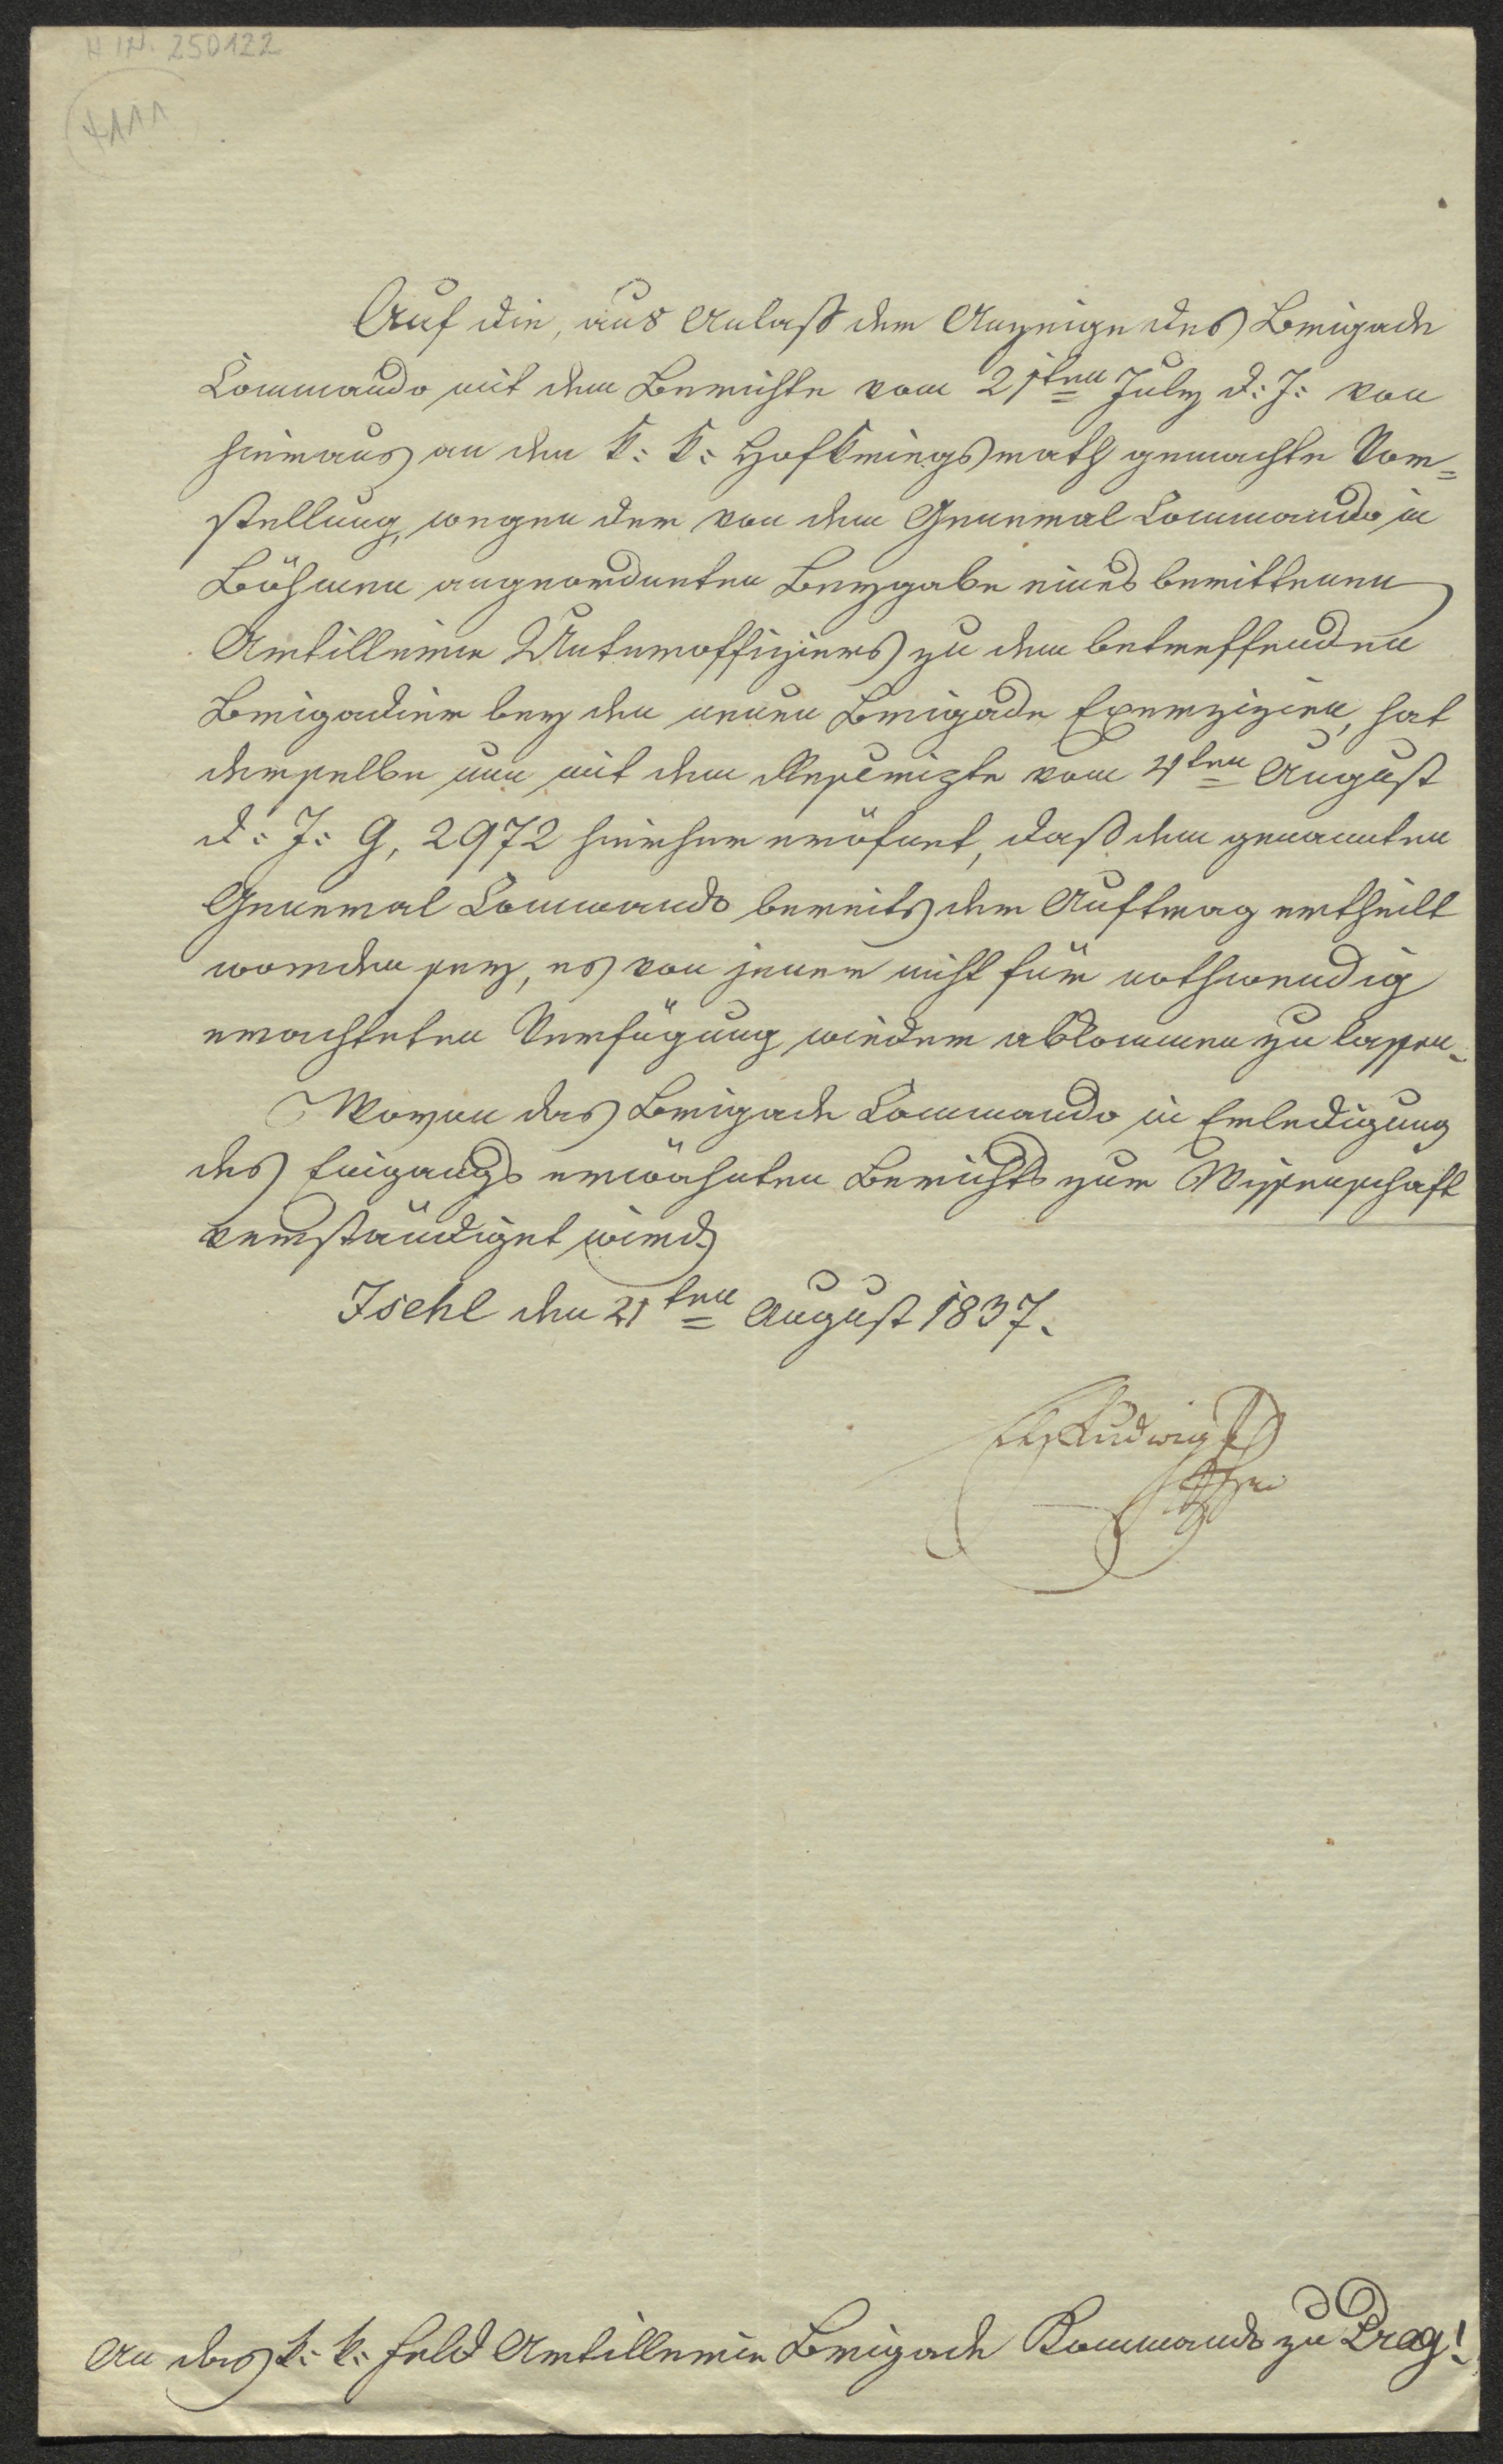 H IN. 250122
Auf die, aus Anlaß der Anzeige des Brigade
Commando mit dem Berichte vom 21ten July d: J: von
hieraus an den k: k: Hofkriegsrath gemachte Vor=
stellung, wegen der von dem General Commando in
Böhmen angeordneten Beygabe eines berittenen
Artillerie Unteroffiziers zu dem betreffenden
Brigadier bey den neuen Brigade Exerzizien, hat
derselbe nun mit dem Rescripte vom August
d: J: G, 2972 hierher eröfnet, daß dem genannten
General Commando bereits der Auftrag ertheilt
worden sey, es von jener nicht für nothwendig
erachteten Verfügung wieder abkommen zu lassen.
Wovon das Brigade Commando in Erledigung
des Eingangs erwähnten Berichts zur Wissenschaft
verständiget wird.
Ischl den 21ten August 1837.
Ludwig
An das k: k: Feld Artillerie Brigade Kommando zu Prag!